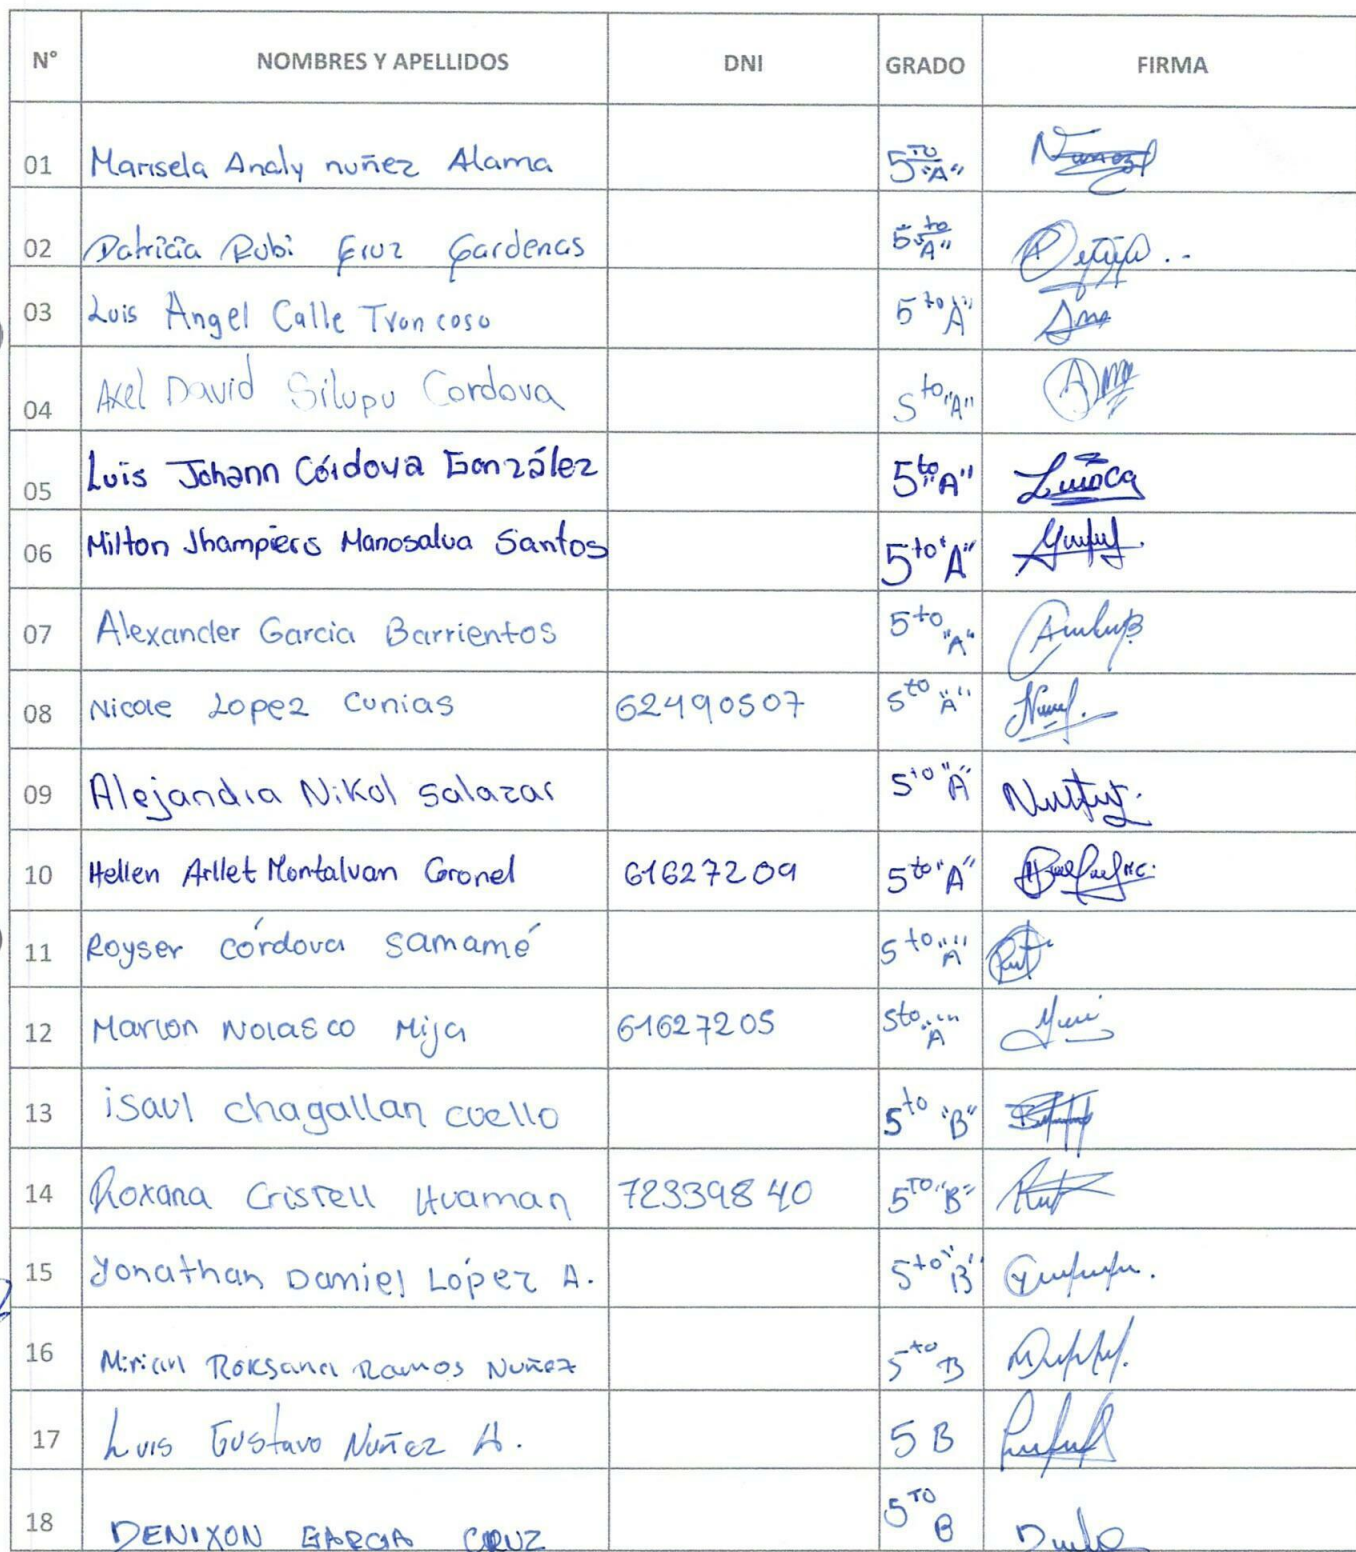 N° NOMBRES Y APELLIDOS DNI GRADO FIRMA
01 Marisela Analy nuñez Alama 5TO "A"
02 Patricia Rubi Cruz Cardenas 5to "A"
03 Luis Angel Calle Troncoso 5to "A"
04 Axel David Silupu Cordova 5to "A"
05 Luis Johann Córdova González 5to "A"
06 Milton Jhampiers Manosalva Santos 5to "A"
07 Alexander Garcia Barrientos 5to "A"
08 Nicole Lopez Cunias 62490507 5to "A"
09 Alejandra Nikol Salazar 5to "A"
10 Hellen Arllet Montalvan Coronel 61627209 5to "A"
11 Royser córdova samamé 5to "A"
12 Marlon Nolasco Mija 61627205 5to "A"
13 isaul chagallan coello 5to "B"
14 Roxana Cristell Huaman 72339840 5TO "B"
15 Yonathan Daniel López A. 5to "B"
16 Mirian Roksana Ramos Nuñez 5to B
17 Luis Gustavo Nuñez A. 5 B
18 DENIXON GARCIA CRUZ 5TO B